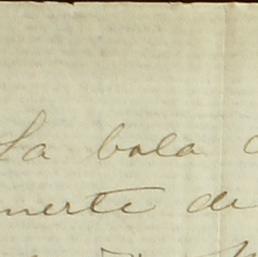 La bola
merte de